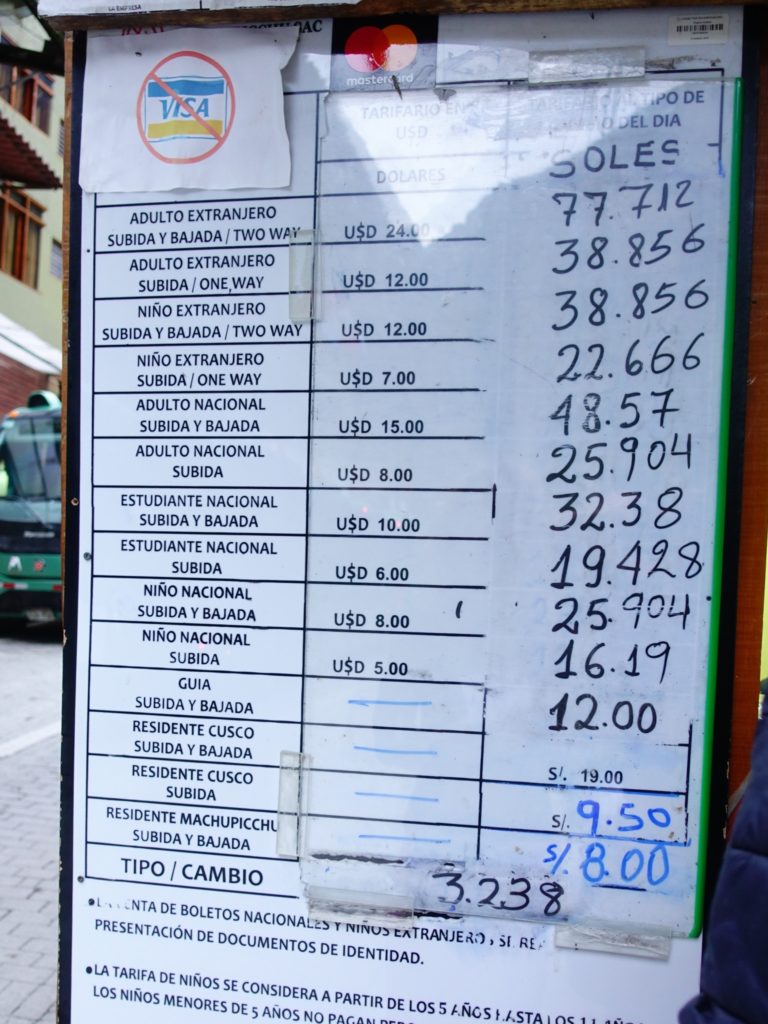 LA EMPRESA
mastercard
VISA
TARIFARIO EN
USD
TIPO DE
DEL DIA
DOLARES
SOLES
ADULTO EXTRANJERO
SUBIDA Y BAJADA / TWO WAY
U$D 24.00
77.712
ADULTO EXTRANJERO
SUBIDA / ONE WAY
U$D 12.00
38.856
NIÑO EXTRANJERO
SUBIDA Y BAJADA / TWO WAY
U$D 12.00
38.856
NIÑO EXTRANJERO
SUBIDA / ONE WAY
U$D 7.00
22.666
ADULTO NACIONAL
SUBIDA Y BAJADA
U$D 15.00
48.57
ADULTO NACIONAL
SUBIDA
U$D 8.00
25.904
ESTUDIANTE NACIONAL
SUBIDA Y BAJADA
U$D 10.00
32.38
ESTUDIANTE NACIONAL
SUBIDA
U$D 6.00
19.428
NIÑO NACIONAL
SUBIDA Y BAJADA
U$D 8.00
25.904
NIÑO NACIONAL
SUBIDA
U$D 5.00
16.19
GUIA
SUBIDA Y BAJADA
12.00
RESIDENTE CUSCO
SUBIDA Y BAJADA
S/. 19.00
RESIDENTE CUSCO
SUBIDA
S/. 9.50
RESIDENTE MACHUPICCHU
SUBIDA Y BAJADA
S/. 8.00
TIPO / CAMBIO
3.238
DE BOLETOS NACIONALES Y NIÑOS EXTRANJERO
PRESENTACIÓN DE DOCUMENTOS DE IDENTIDAD.
•LA TARIFA DE NIÑOS SE CONSIDERA A PARTIR DE LOS 5 AÑOS HASTA LOS 11
LOS NIÑOS MENORES DE 5 AÑOS NO PAGAN